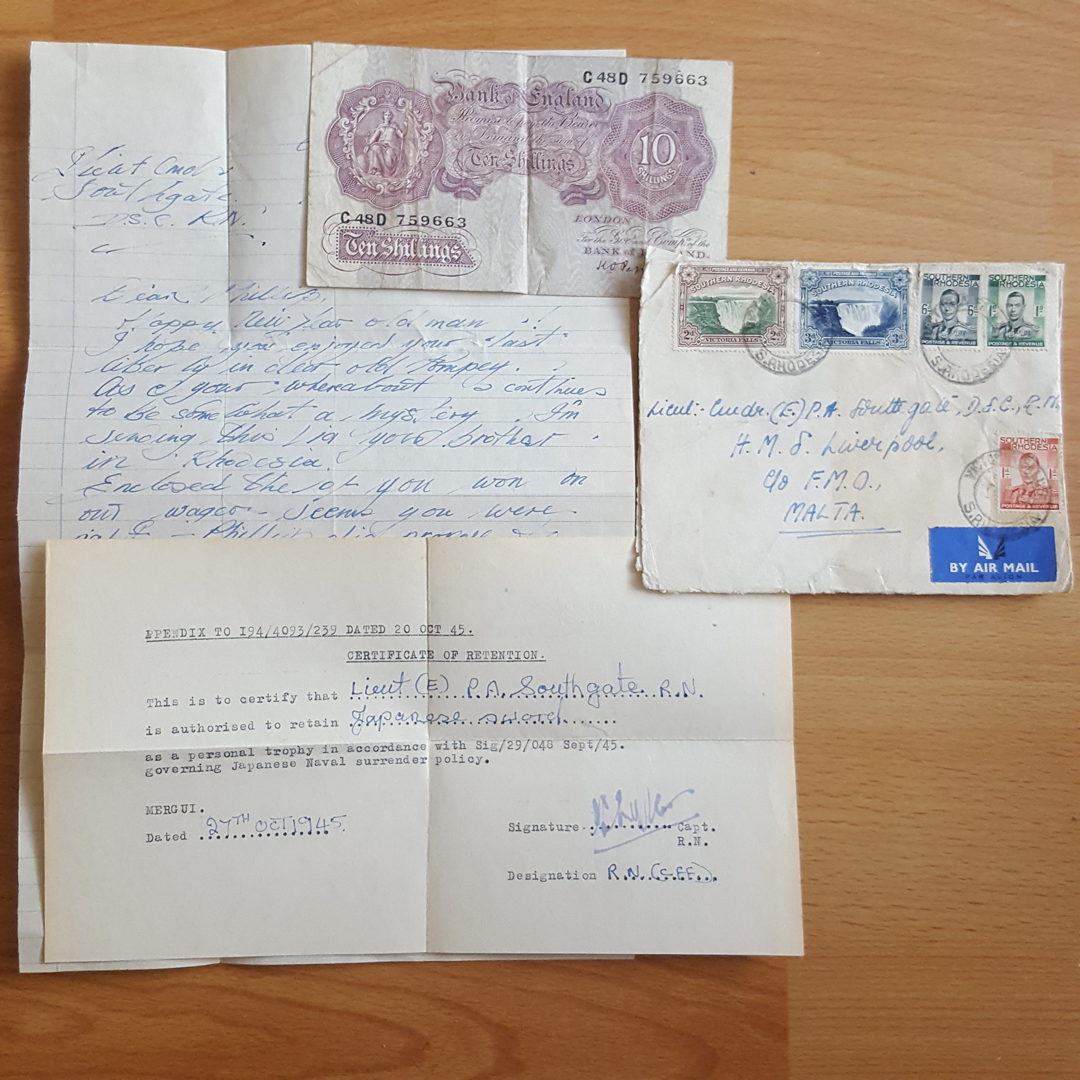 Southgate
D.S.C. R.N.
Dear Phillip,
Happy New Year old man!!
I hope you enjoyed your last
in dear old Pompey.
As your whereabouts continues
to be somewhat a mystery. I'm
sending this via your brother
in Rhodesia.
Enclosed the you won on
our wager - seems you were
C48D 759663
Bank of England
Ten Shillings
10
SHILLINGS
C48D 759663
LONDON
For the Govr and Compa of the
BANK OF ENGLAND.
Ten Shillings
SOUTHERN RHODESIA
2d 2d
VICTORIA FALLS
SOUTHERN RHODESIA
3d 3d
VICTORIA FALLS
SOUTHERN
RHODESIA
6d 6d
POSTAGE & REVENUE
SOUTHERN
RHODESIA
POSTAGE & REVENUE
S. RHODESIA
Lieut:-Cmdr. (E) P.A. Southgate, D.S.C., R.N.
H.M.S Liverpool,
c/o F.M.O.,
MALTA.
SOUTHERN
RHODESIA
POSTAGE & REVENUE
BY AIR MAIL
PAR AVION
PPENDIX TO 194/4093/239 DATED 20 OCT 45.
CERTIFICATE OF RETENTION.
This is to certify that Lieut (E) P.A. Southgate R.N.
is authorised to retain Japanese sword
as a personal trophy in accordance with Sig/29/048 Sept/45.
governing Japanese Naval surrender policy.
MERGUI.
Dated 27TH OCT 1945.
Signature Capt.
R.N.
Designation R.N.